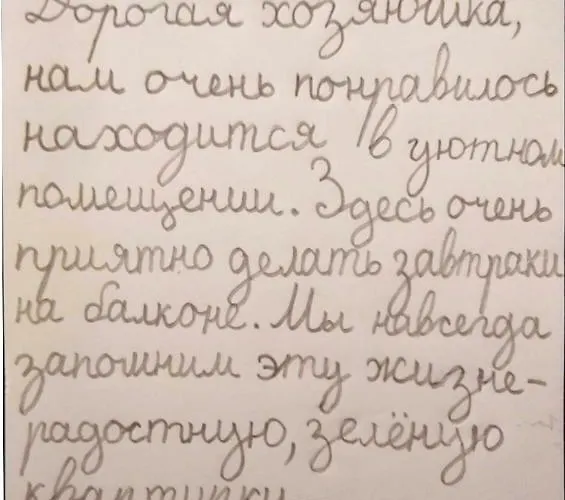 Дорогая хозяюшка,
нам очень понравилось
находится в уютном
помещении. Здесь очень
приятно делать завтраки
на балконе. Мы навсегда
запомним эту жизне-
радостную, зелёную
квартирку